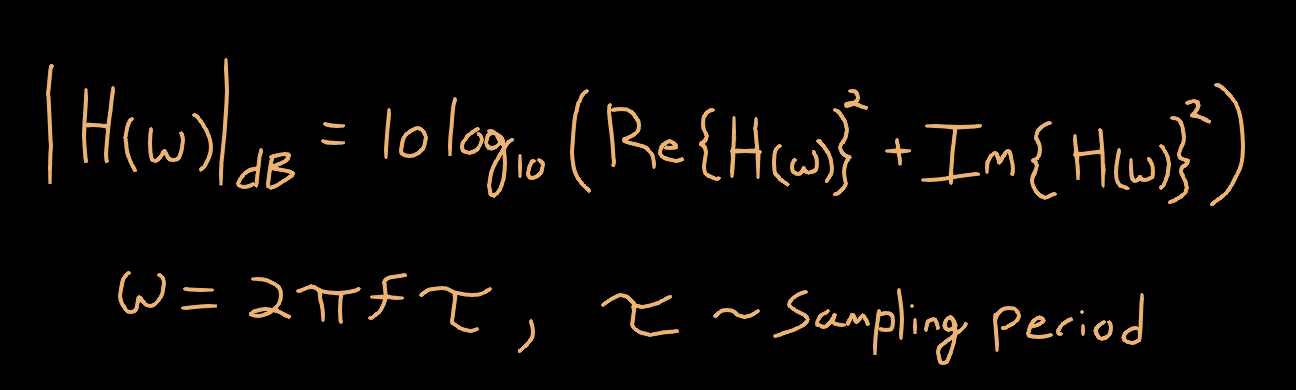 |H(ω)|_dB = 10 log_10 (Re{H(ω)}^2 + Im{H(ω)}^2)
ω = 2πfτ, τ ~ Sampling period